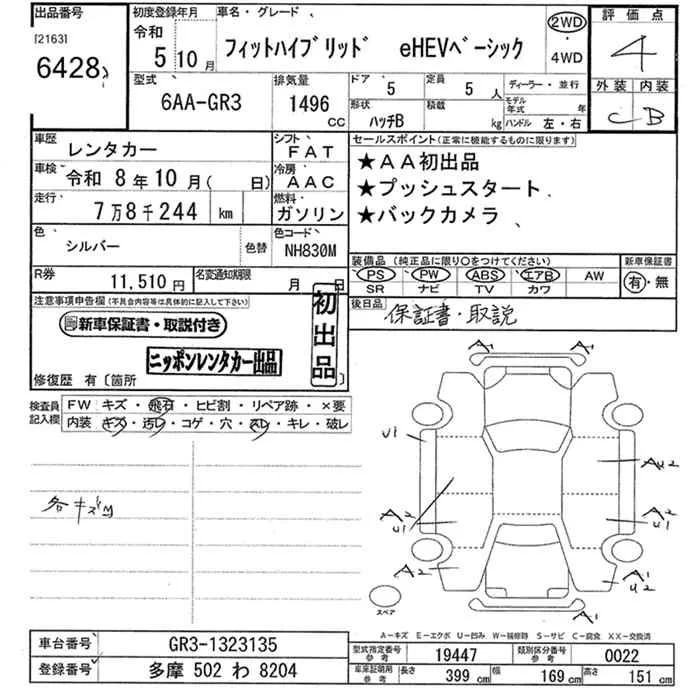 出品番号 初度登録年月 車名・グレード 評価点
[2163] 令和
6428 5年10月 フィットハイブリッド eHEVベーシック 2WD・4WD 4
型式 排気量 ドア 定員 ディーラー・並行 外装 内装
6AA-GR3 1496 CC 5 5人 モデル年式 年 C B
形状 積載
ハッチB kg ハンドル 左・右
車歴 レンタカー シフト FAT セールスポイント(正常に機能するものに限ります)
車検 令和 8年10月( 日) 冷房 AAC ★AA初出品
走行 7万8千244 km 燃料 ガソリン ★プッシュスタート
★バックカメラ
色 シルバー 色替 色コード NH830M
装備品 (純正品に限り○をつけてください) 新車保証書
R券 11,510円 名変通知期限 月 日 PS PW ABS エアB AW 有・無
SR ナビ TV カワ
注意事項申告欄(不具合内容等は具体的に記入して下さい) 初出品 後日品 保証書・取説
新車保証書・取説付き
ニッポンレンタカー出品
修復歴 有〔箇所
検査員記入欄 FW キズ・飛石・ヒビ割・リペア跡・×要
内装 キズ・汚レ・コゲ・穴・スレ・キレ・破レ
A1 A1
U1
AU2
各キズM
A2 U1
A2 U1
A2
A1 U2
A1
スペア
A-キズ E-エクボ U-凹み W-補修跡 S-サビ C-腐食 XX-交換済
車台番号 GR3-1323135 型式指定番号 参考 19447 類別区分番号 参考 0022
登録番号 多摩 502 わ 8204 車庫証明用 参考 長さ 399cm 幅 169cm 高さ 151cm